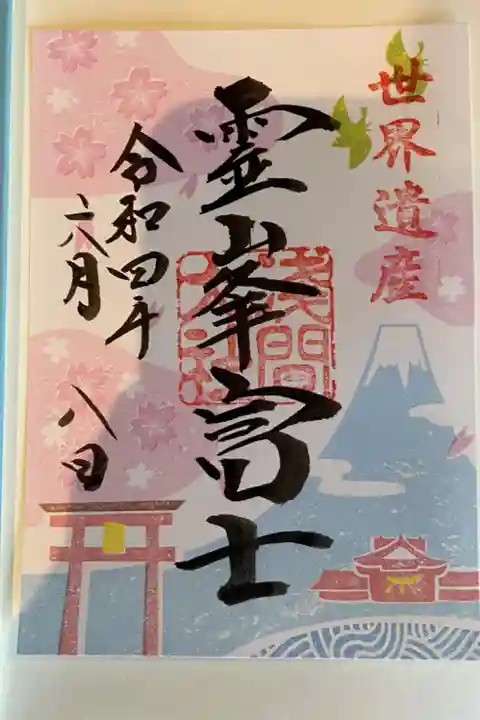 世界遺産
霊峯冨士
浅間大社
令和四年
六月
八日